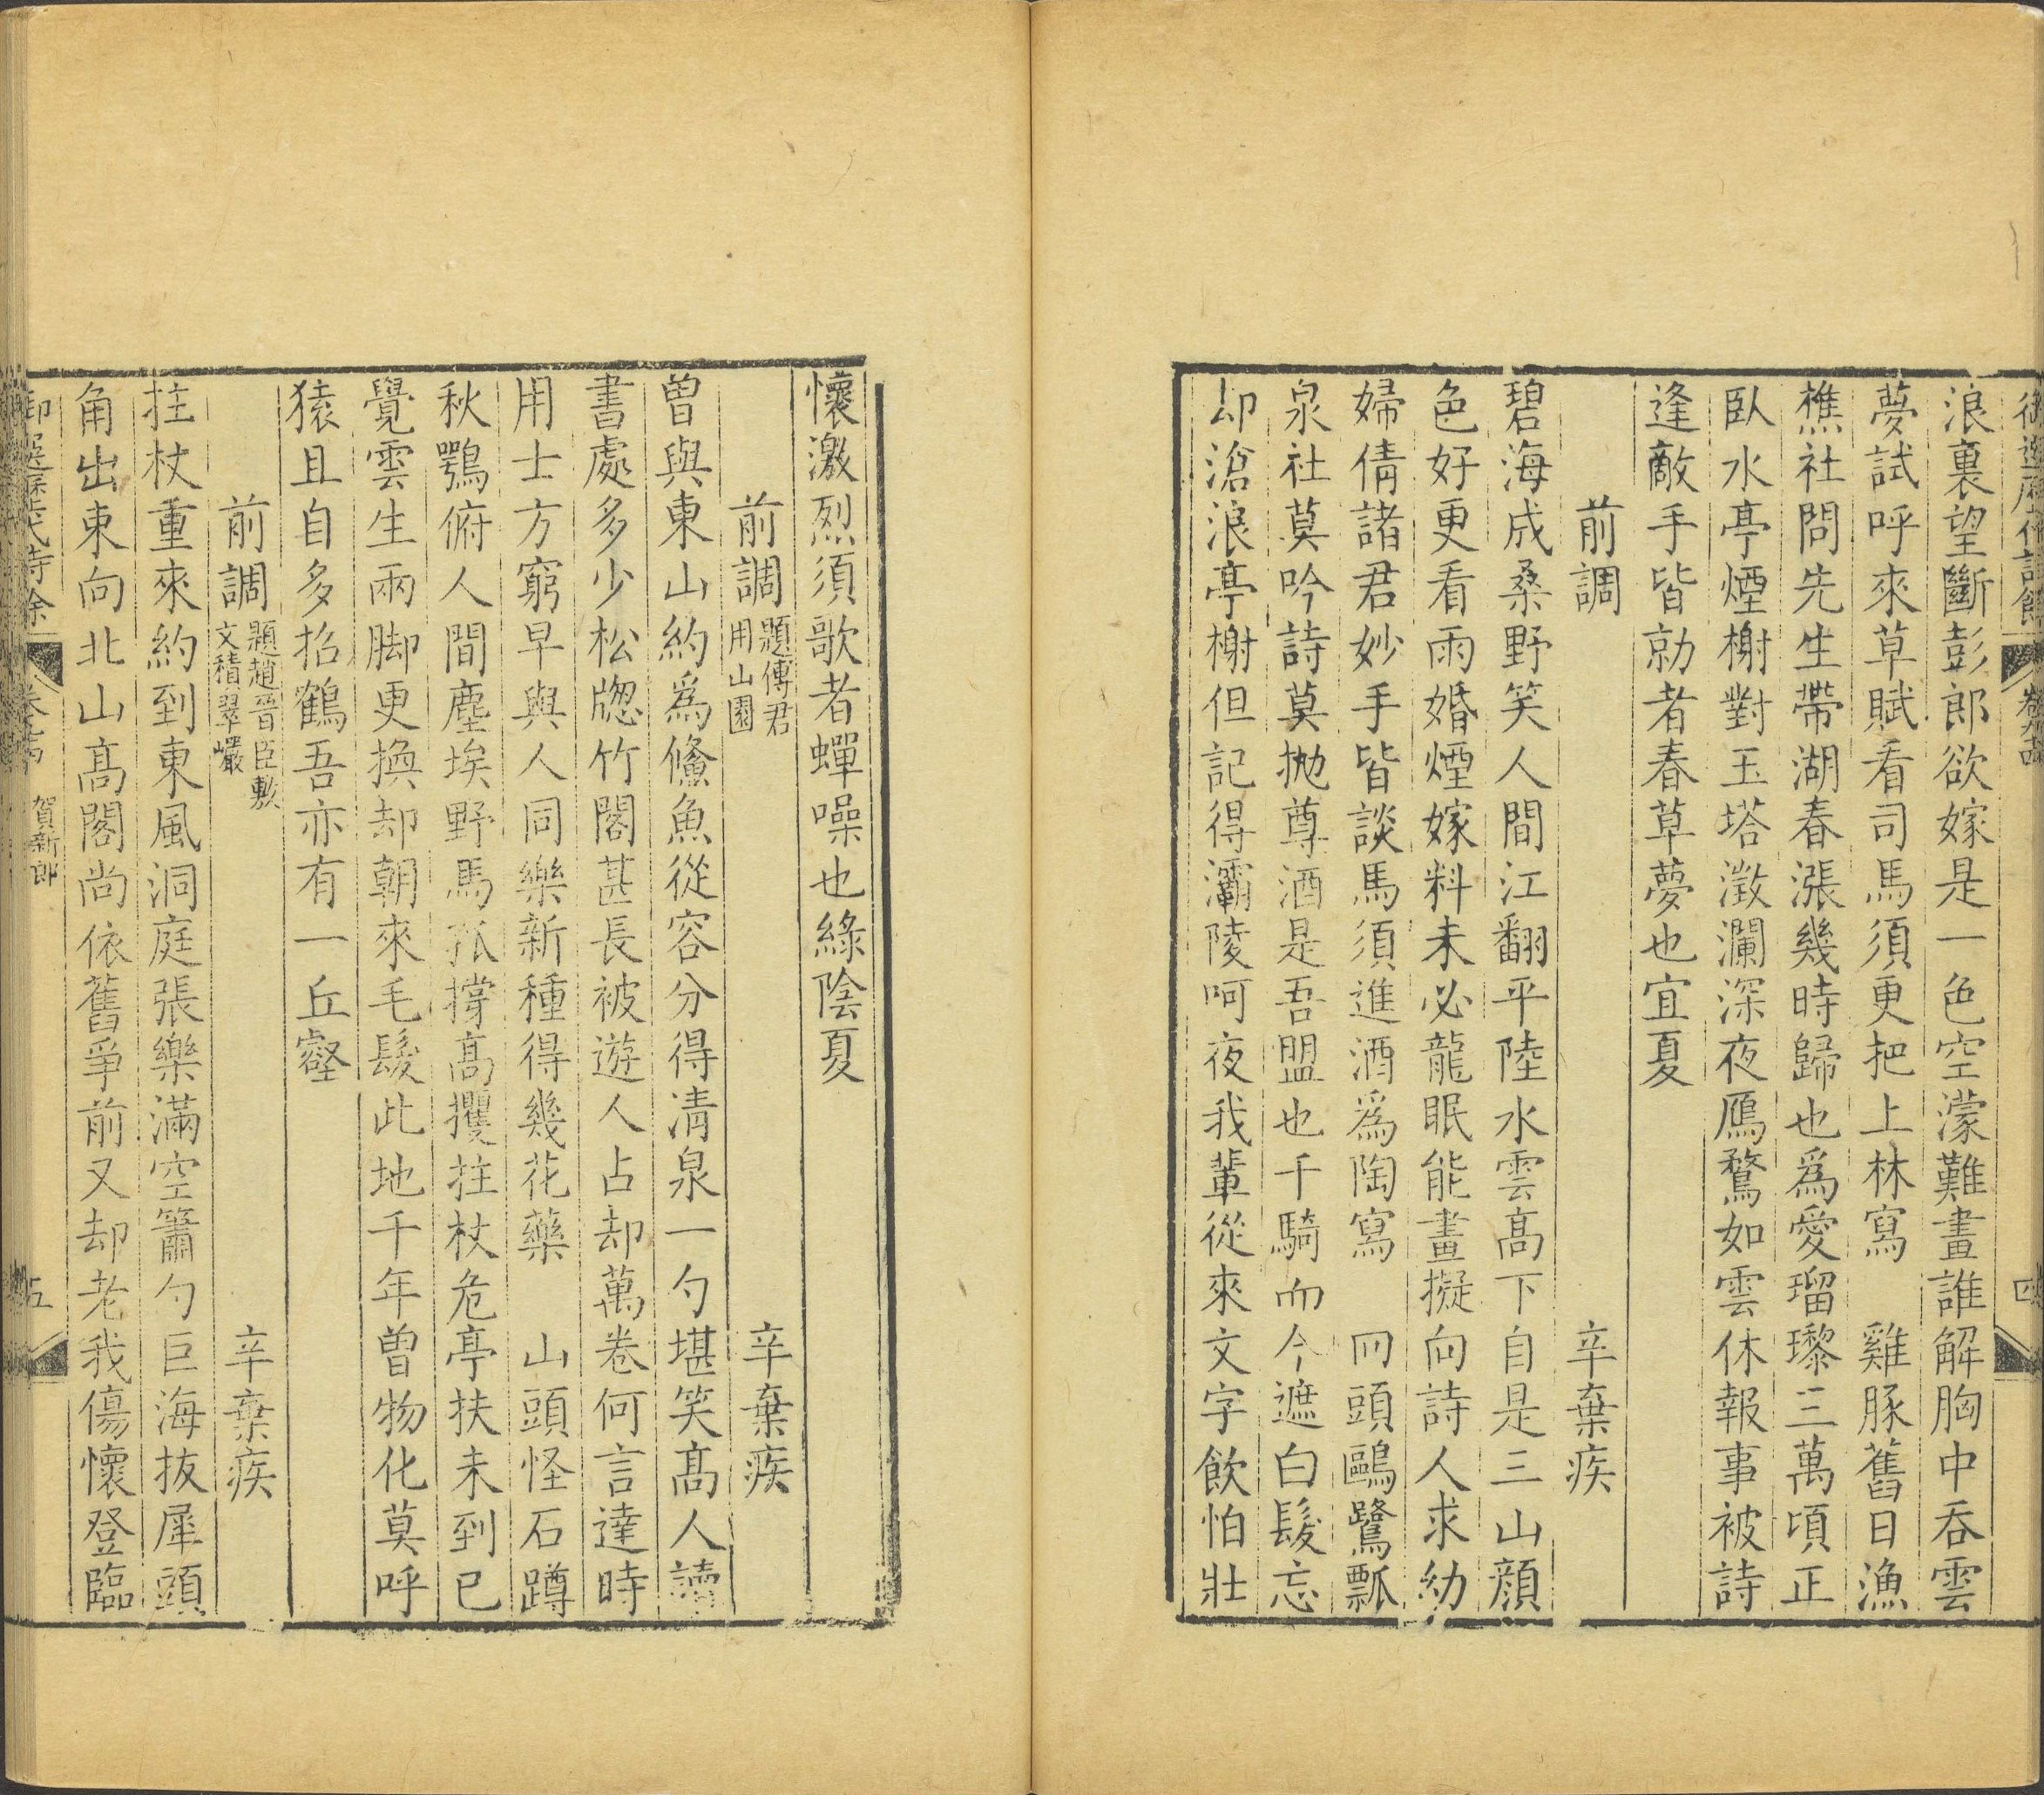 御選歷代詩餘 卷九十四 四
浪裏望斷彭郎欲嫁是一色空濛難畫誰解胸中吞雲
夢試呼來草賦看司馬須更把上林寫 雞豚舊日漁
樵社問先生帶湖春漲幾時歸也爲愛瑠瓈三萬頃正
臥水亭煙榭對玉塔澂瀾深夜鴈鶩如雲休報事被詩
逢敵手皆勍者春草夢也宜夏
前調 辛棄疾
碧海成桑野笑人間江翻平陸水雲高下自是三山顏
色好更看雨婚煙嫁料未必龍眠能畫擬向詩人求幼
婦倩諸君妙手皆談馬須進酒爲陶寫 囘頭鷗鷺瓢
泉社莫吟詩莫抛尊酒是吾盟也千騎而今遮白髮忘
却滄浪亭榭但記得灞陵呵夜我輩從來文字飲怕壯
懷激烈須歌者蟬噪也綠陰夏
前調 題傳君用山園 辛棄疾
曾與東山約爲鯈魚從容分得清泉一勺堪笑高人讀
書處多少松牕竹閣甚長被遊人占却萬卷何言達時
用士方窮早與人同樂新種得幾花藥 山頭怪石蹲
秋鶚俯人間塵埃野馬孤撐高攫拄杖危亭扶未到已
覺雲生兩脚更換却朝來毛髮此地千年曾物化莫呼
猿且自多招鶴吾亦有一丘壑
前調 題趙晉臣敷文積翠巖 辛棄疾
拄杖重來約到東風洞庭張樂滿空簫勺巨海拔犀頭
角出東向北山高閣尚依舊爭前又却老我傷懷登臨
御選歷代詩餘 卷九十四 賀新郎 五